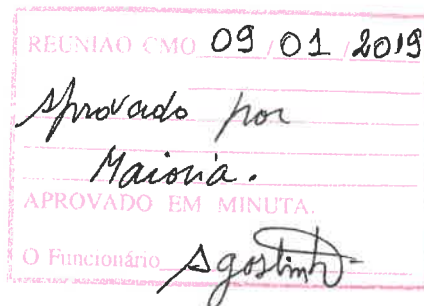 REUNIAO CMO 09/01/2019
Aprovado por
Maioria.
APROVADO EM MINUTA.
O Funcionário Agostinho